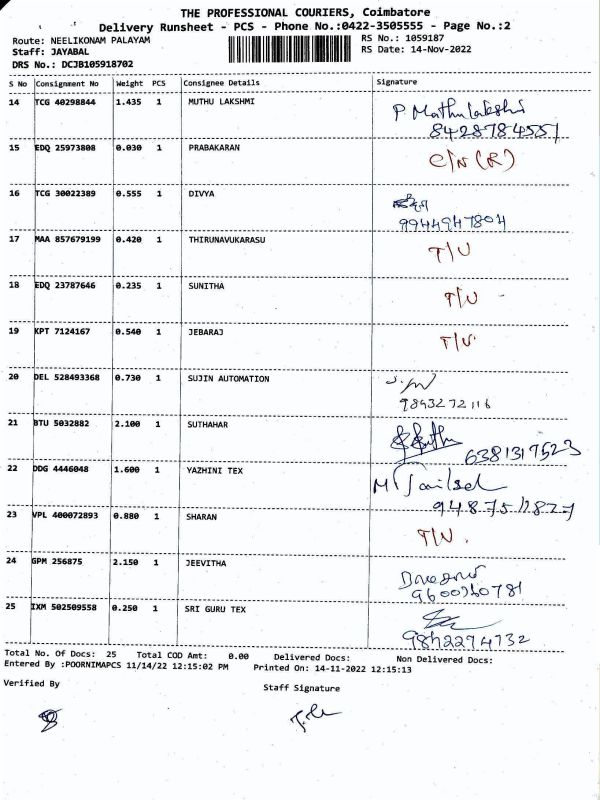 THE PROFESSIONAL COURIERS, Coimbatore
Delivery Runsheet - PCS - Phone No.:0422-3505555 - Page No.:2
Route: NEELIKONAM PALAYAM RS No.: 1059187
Staff: JAYABAL RS Date: 14-Nov-2022
DRS No.: DCJB105918702
S No Consignment No Weight PCS Consignee Details Signature
14 TCG 40298844 1.435 1 MUTHU LAKSHMI P. Muthulakshmi
8428784551
15 EDQ 25973808 0.030 1 PRABAKARAN C/N (R)
16 TCG 30022389 0.555 1 DIVYA
9944947804
17 MAA 857679199 0.420 1 THIRUNAVUKARASU T/U
18 EDQ 23787646 0.235 1 SUNITHA T/U
19 KPT 7124167 0.540 1 JEBARAJ T/U
20 DEL 528493368 0.730 1 SUJIN AUTOMATION
9843272116
21 BTU 5032882 2.100 1 SUTHAHAR
6381317523
22 DDG 4446048 1.600 1 YAZHINI TEX
9487511827
23 VPL 400072893 0.880 1 SHARAN T/U.
24 GPM 256875 2.150 1 JEEVITHA
9600260781
25 IXM 502509558 0.250 1 SRI GURU TEX
9842294732
Total No. Of Docs: 25 Total COD Amt: 0.00 Delivered Docs: Non Delivered Docs:
Entered By :POORNIMAPCS 11/14/22 12:15:02 PM Printed On: 14-11-2022 12:15:13
Verified By Staff Signature